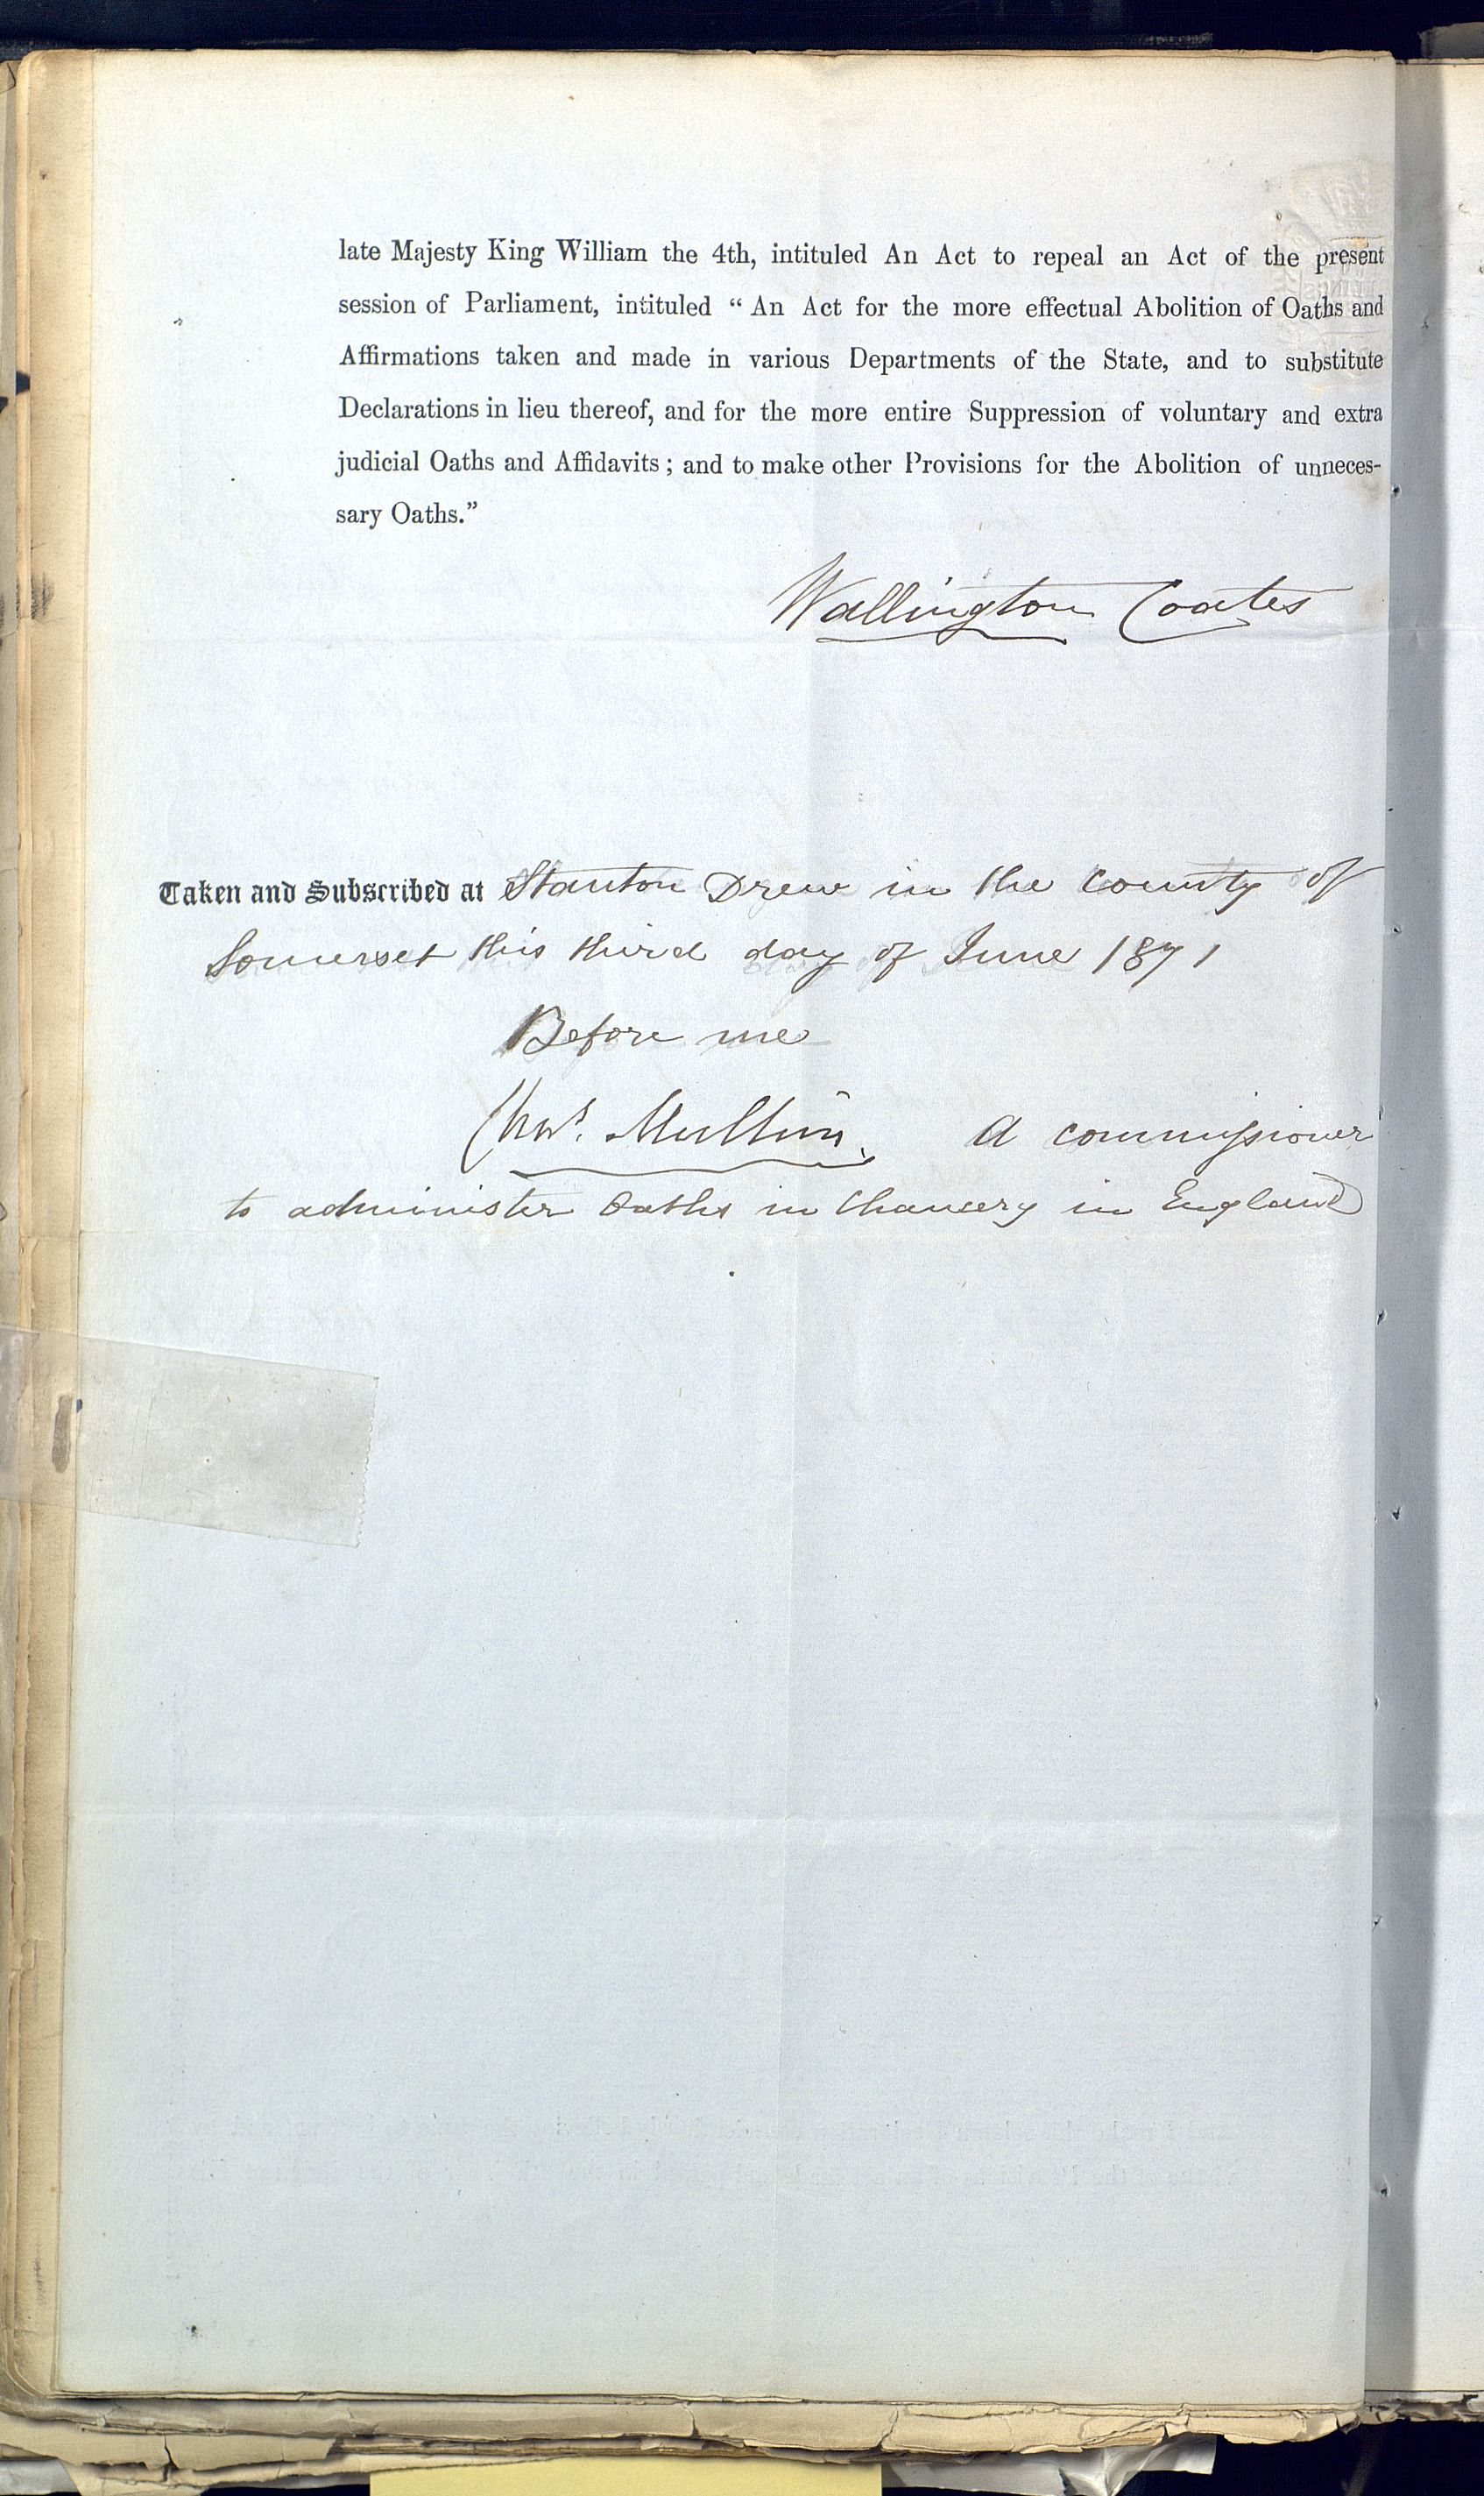 late Majesty King William the 4th, intituled An Act to repeal an Act of the present
session of Parliament, intituled “ An Act for the more effectual Abolition of Oaths and
Affirmations taken and made in various Departments of the State, and to substitute
Declarations in lieu thereof, and for the more entire Suppression of voluntary and extra
judicial Oaths and Affidavits ; and to make other Provisions for the Abolition of unneces-
sary Oaths.”
Wallington Coates
Taken and Subscribed at Stanton Drew in the County of
Somerset this third day of June 1871
Before me
Mullins. A commissioner
to administer Oaths in Chancery in England